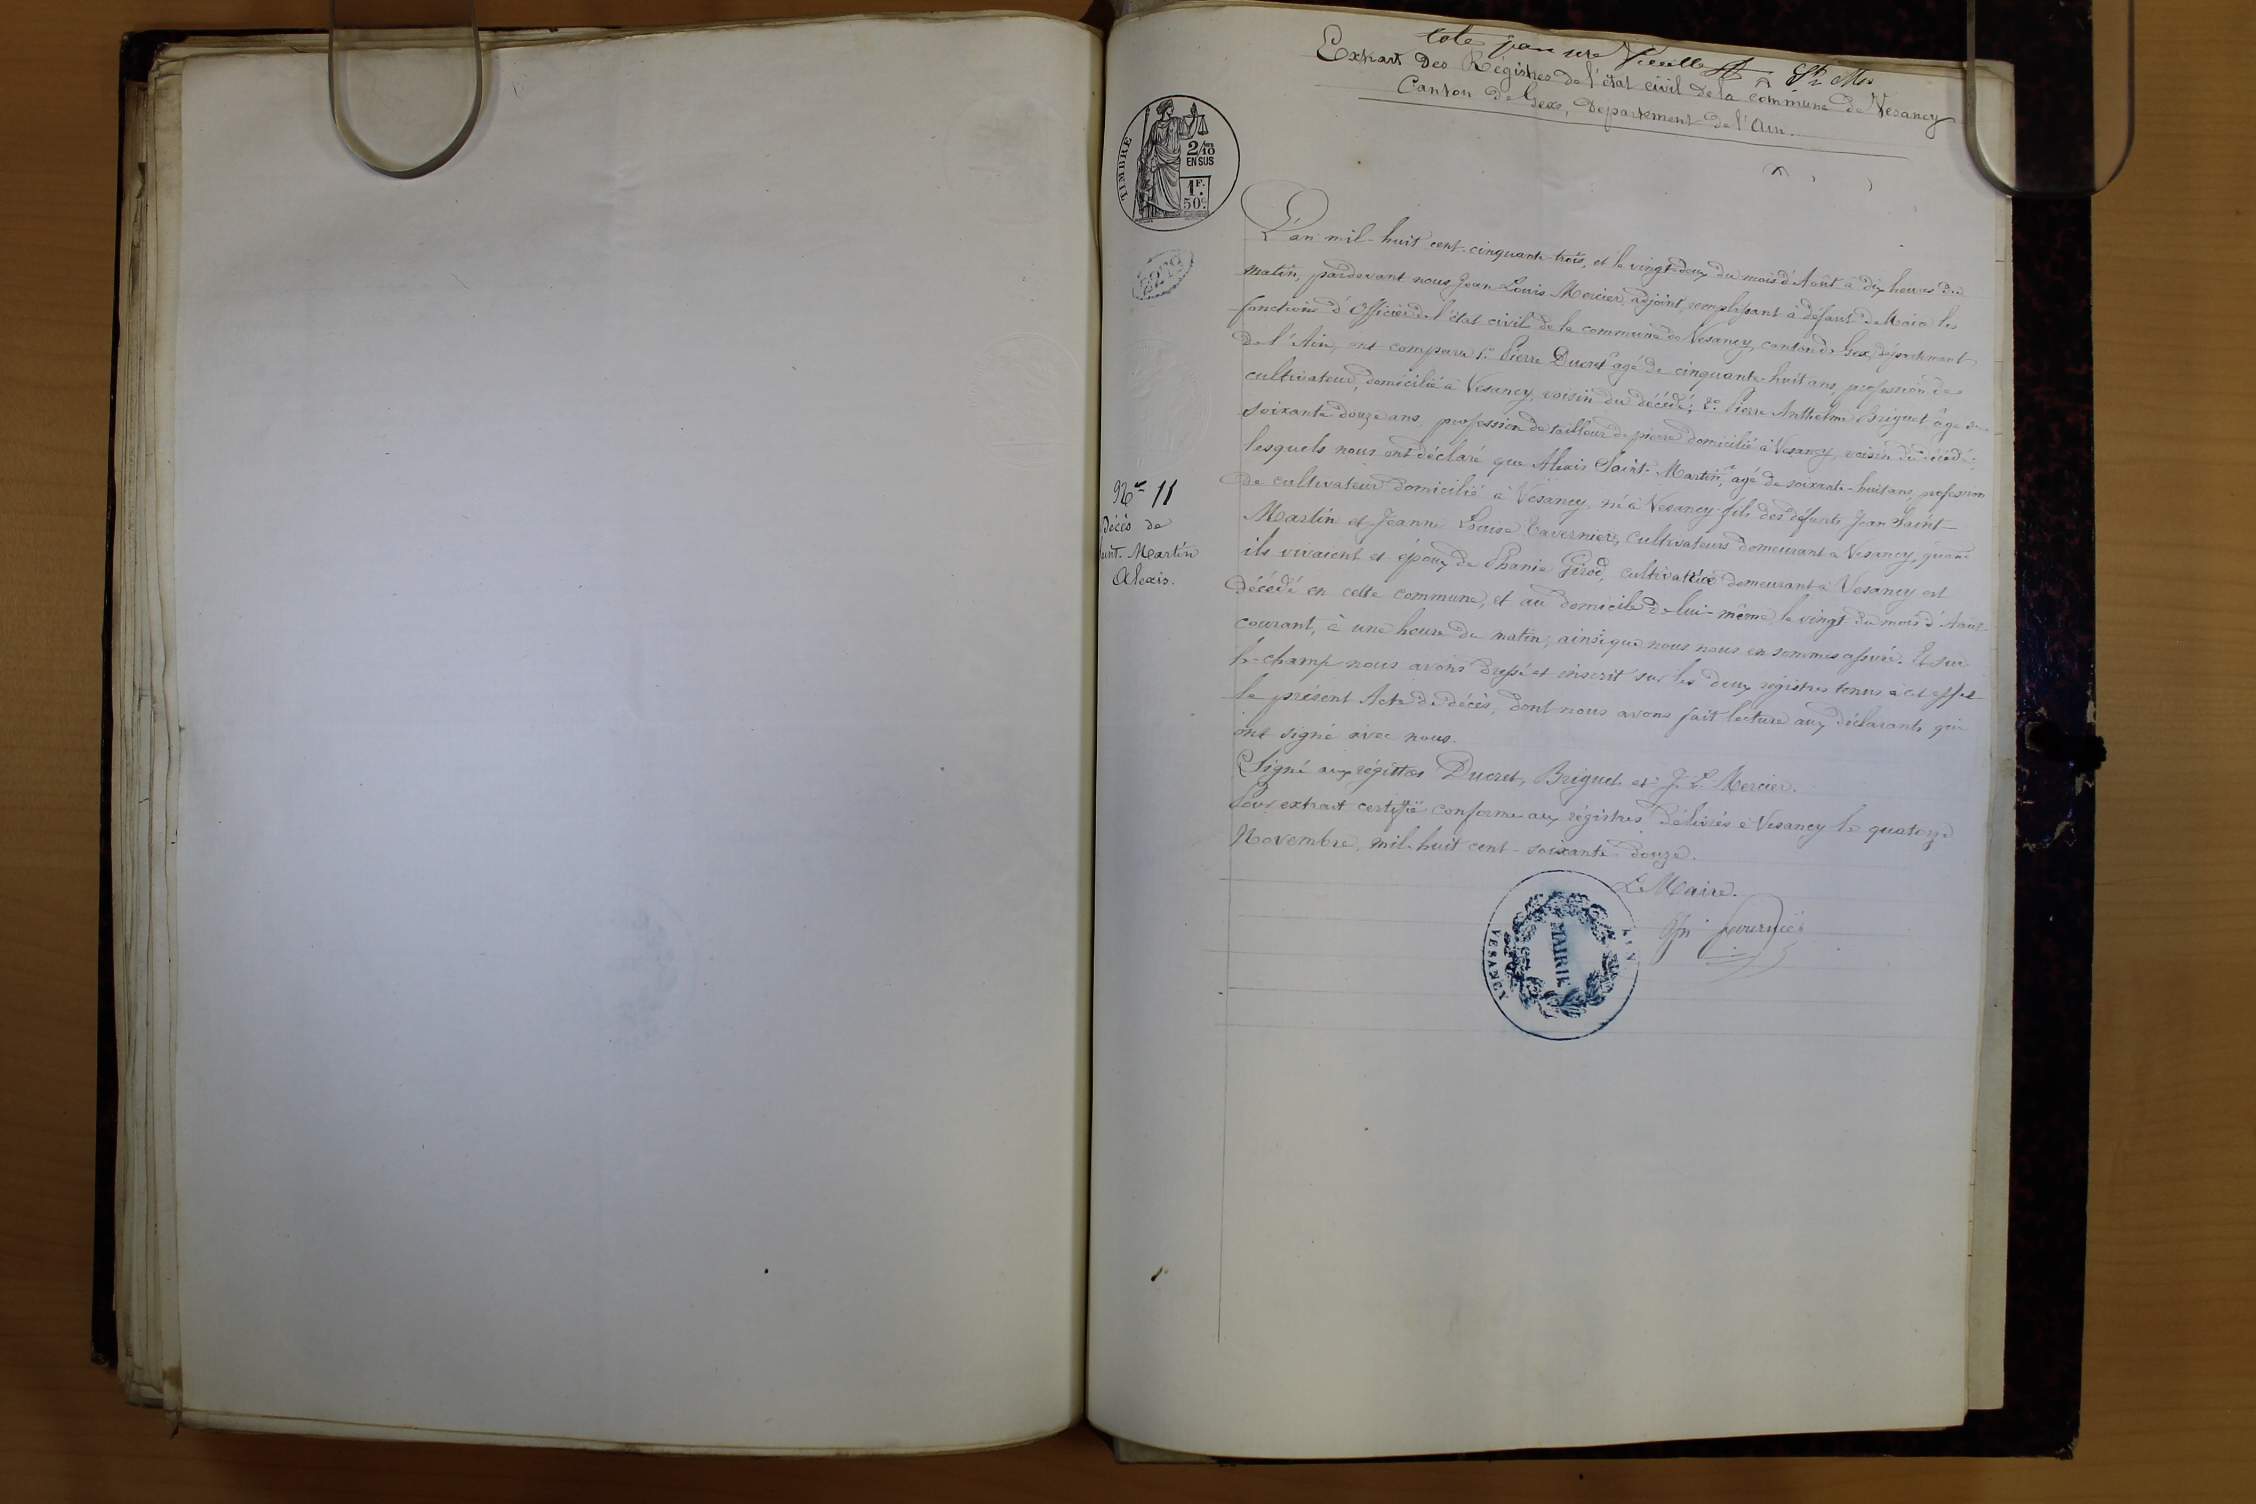 Extrait des Régistres de l'état civil de la commune de Vesancy
Canton de Gex, Département de l'Ain.
TIMBRE
2/10
EN SUS
1F.
50c.
L'an mil-huit cent-cinquante-trois, et le vingt-deux du mois d'Août à dix heures du
matin, pardevant nous Jean Louis Mercier, adjoint, remplissant à défaut de Maire les
fonctions d'Officier de l'état civil de la commune de Vesancy, canton de Gex, département
de l'Ain, ont comparu 1° Pierre Ducret agé de cinquante-huit ans, profession de
cultivateur, domicilié à Vesancy, voisin du décédé; 2° Pierre Anthelme Briguet âgé de
soixante douze ans, profession de tailleur de pierre domicilié à Vesancy, voisin du décédé;
lesquels nous ont déclaré que Alexis Saint-Martin, agé de soixante-huit ans, profession
de cultivateur domicilié à Vesancy, né à Vesancy fils des défunts Jean Saint-
Martin et Jeanne Louise Tavernier, cultivateurs demeurant à Vesancy, quand
ils vivaient et époux de Phanie Girod, cultivatrice demeurant à Vesancy est
décédé en cette commune, et au domicile de lui-même le vingt du mois d'Août
courant, à une heure du matin; ainsi que nous nous en sommes assuré. Et sur
le-champ nous avons dressé et inscrit sur les deux régistres tenus à cet effet
le présent Acte de décès, dont nous avons fait lecture aux déclarants qui
ont signé avec nous.
Signé aux régistres Ducret, Briguet et J. L. Mercier.
Pour extrait certifié conforme aux régistres, délivrés à Vesancy le quatorze
Novembre, mil-huit cent-soixante douze.
Le Maire.
MAIRIE
VESANCY
AIN
No 11
Décès de
Saint-Martin
Alexis.